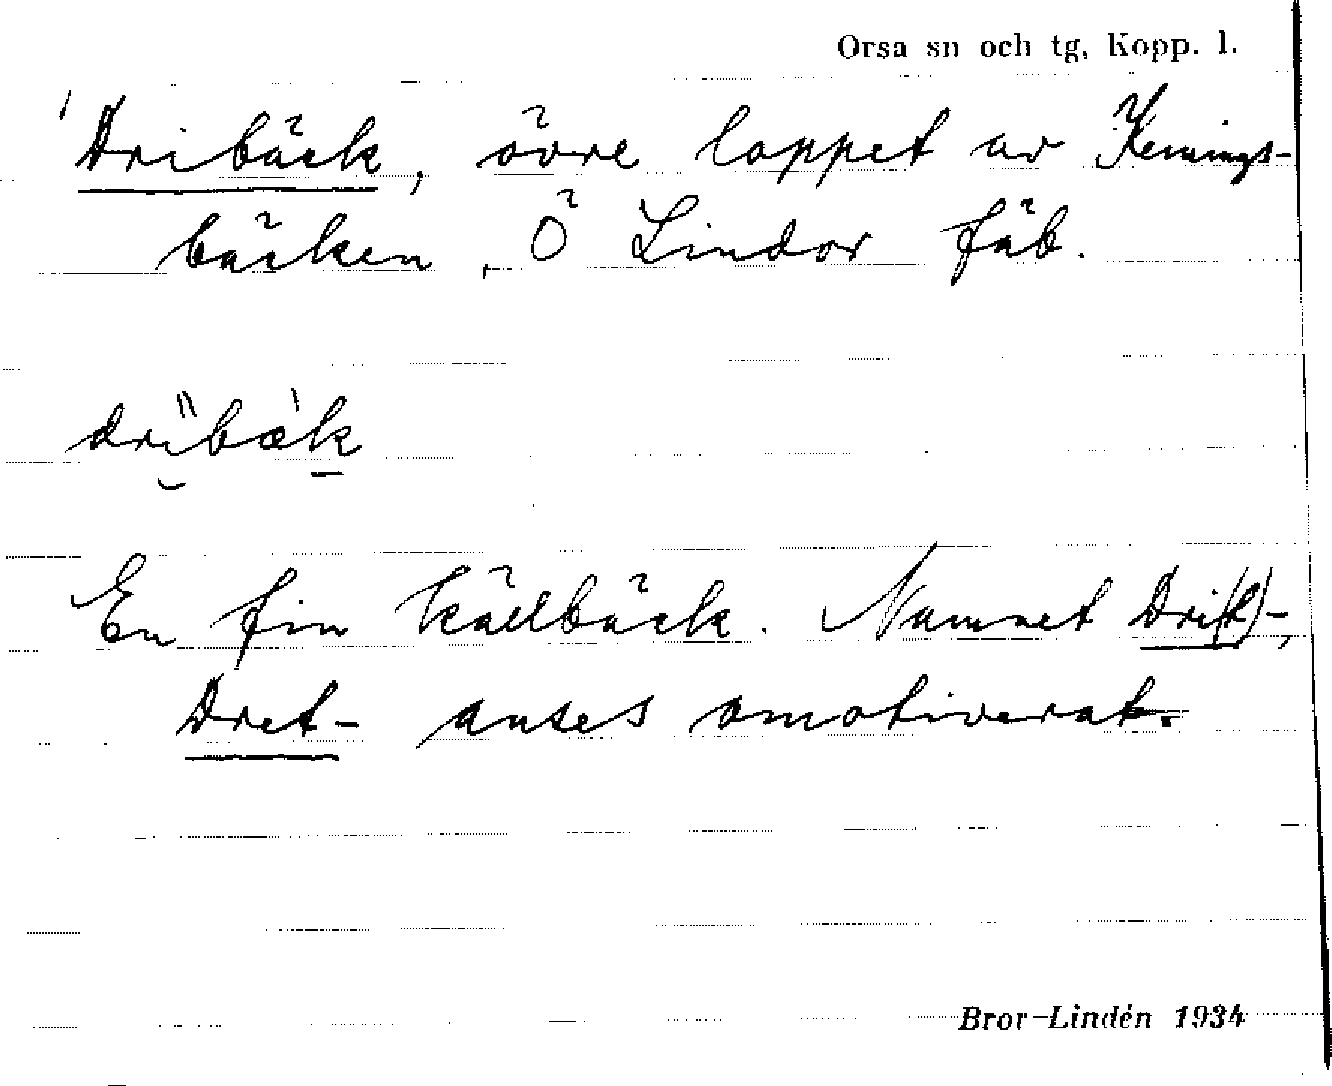 Orsa sn och tg, Kopp. l.
Dribäck, övre loppet av Kennings-
bäcken, Ö Lindor fäb.
dribæk
En fin källbäck. Namnet Dri(t)-,
Dret- anses omotiverat.
Bror Lindén 1934